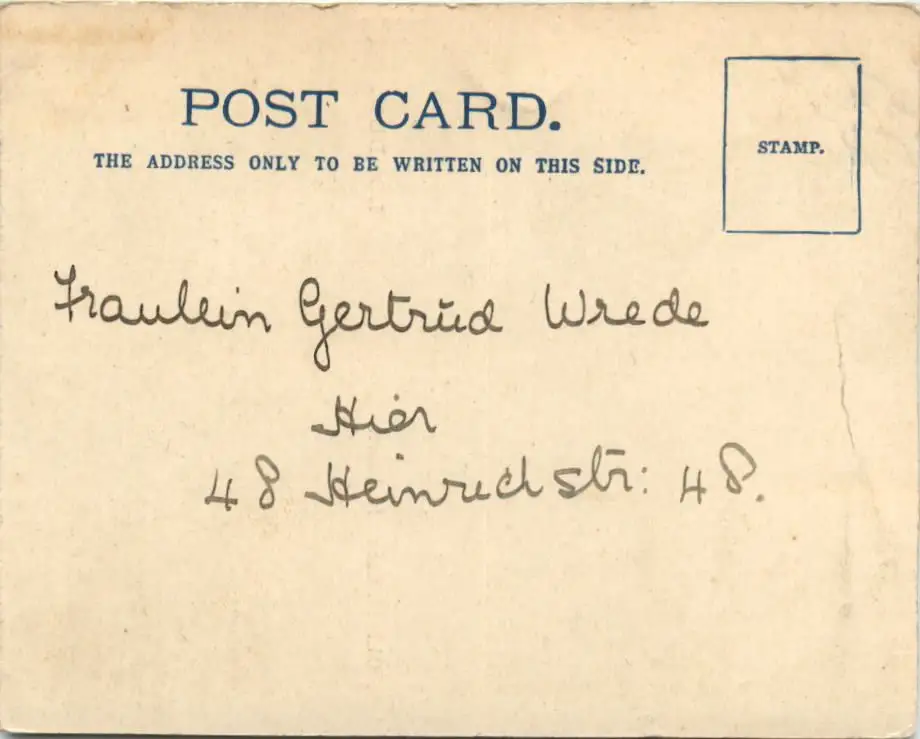 POST CARD.
THE ADDRESS ONLY TO BE WRITTEN ON THIS SIDE.
STAMP.
Fraulein Gertrud Wrede
Hier
48 Heinrichstr: 48.